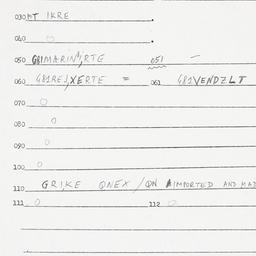 030 MT IKRE
040 O
050 GHMARIN,RTE 051 —
060 481REJ,XERTE = 061 481VENDZLT
070 O
080 O
090 O
100 O
110 GRIKE QNEX / QN IMPORTED AND MAD
111 O 112 O